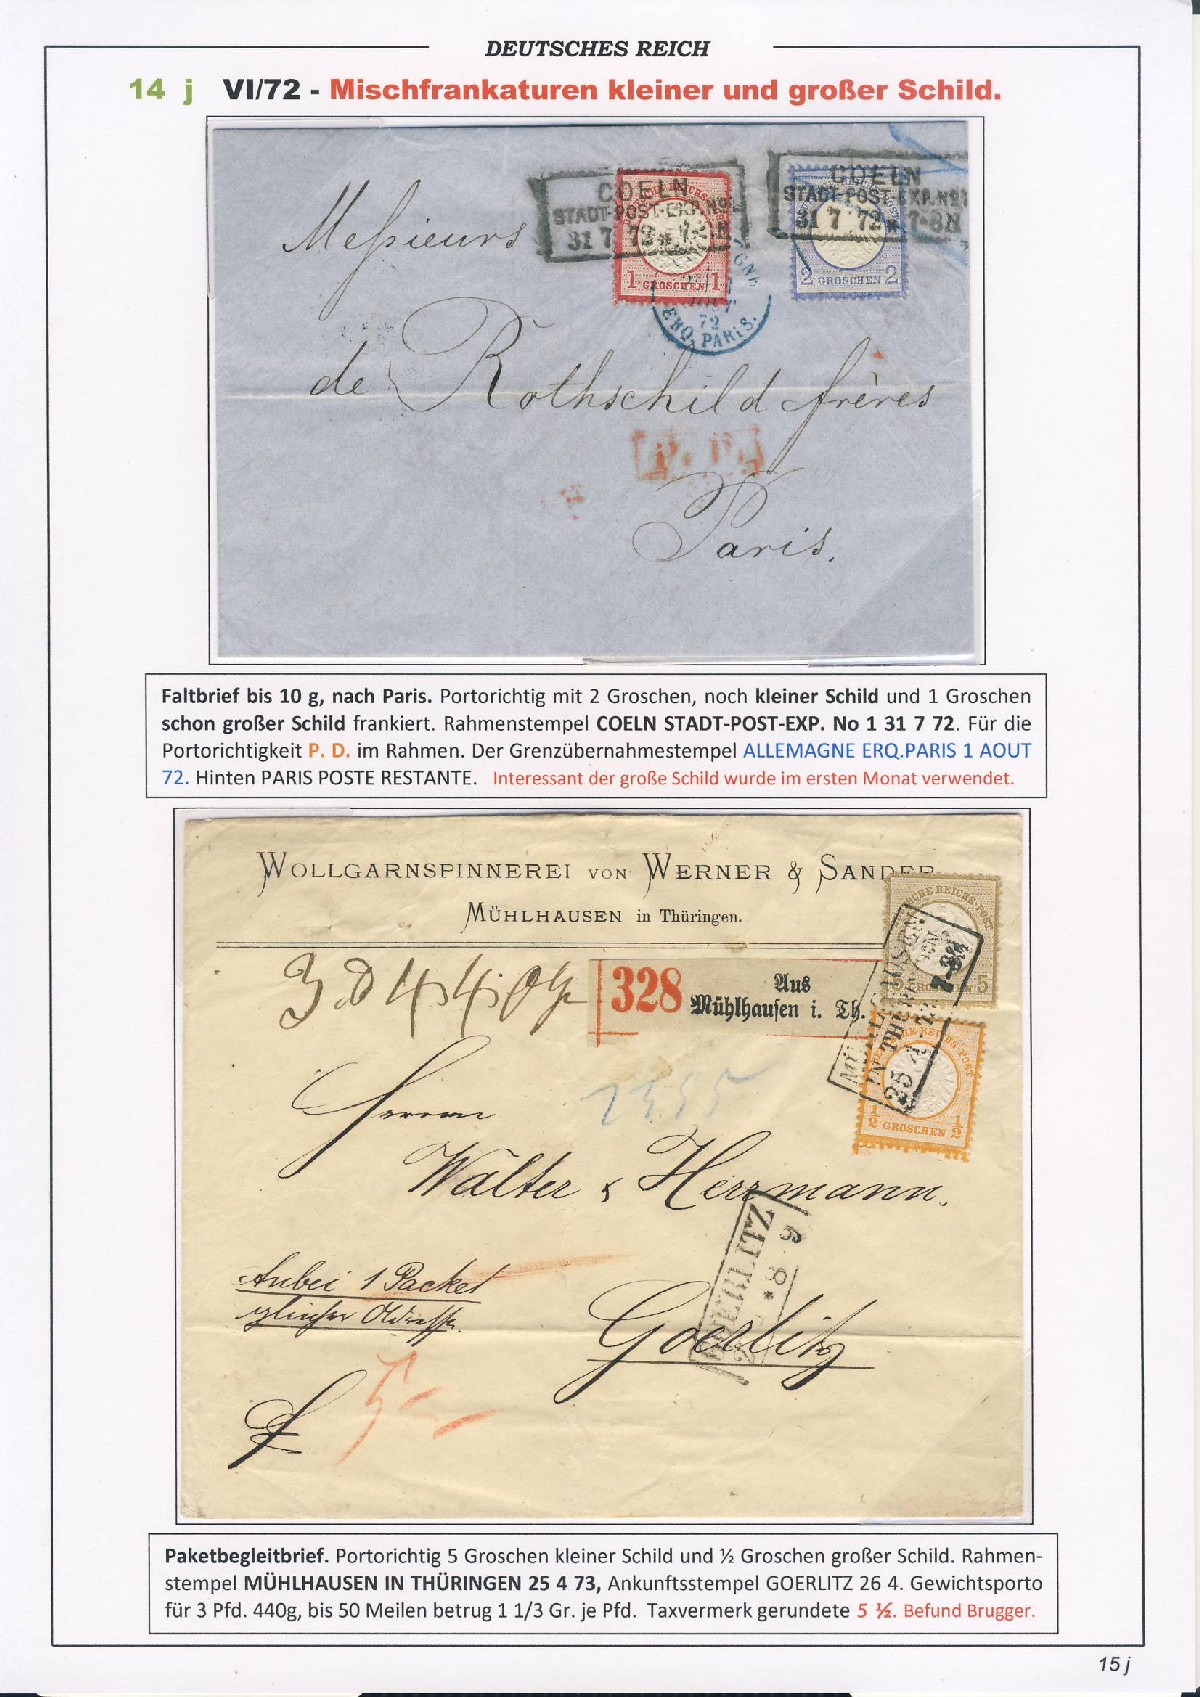 DEUTSCHES REICH
14 j VI/72 - Mischfrankaturen kleiner und großer Schild.
COELN
STADT-POST-EXP. No 1
31 7 72 * 7-8 N
COELN
STADT-POST-EXP. No 1
31 7 72 * 7-8 N
1 GROSCHEN 1
2 GROSCHEN 2
72
ERQ. PARIS.
Messieurs
de Rothschild frères
P. D.
Paris.
Faltbrief bis 10 g, nach Paris. Portorichtig mit 2 Groschen, noch kleiner Schild und 1 Groschen
schon großer Schild frankiert. Rahmenstempel COELN STADT-POST-EXP. No 1 31 7 72. Für die
Portorichtigkeit P. D. im Rahmen. Der Grenzübernahmestempel ALLEMAGNE ERQ.PARIS 1 AOUT
72. Hinten PARIS POSTE RESTANTE. Interessant der große Schild wurde im ersten Monat verwendet.
WOLLGARNSPINNEREI VON WERNER & SANDER
MÜHLHAUSEN in Thüringen.
328 Aus
Mühlhausen i. Th.
5
GROSCHEN
MÜHLHAUSEN
IN THÜRINGEN
25 4
½ GROSCHEN ½
Herren
Walter & Herrmann.
Anbei 1 Packet
Goerlitz
Paketbegleitbrief. Portorichtig 5 Groschen kleiner Schild und ½ Groschen großer Schild. Rahmen-
stempel MÜHLHAUSEN IN THÜRINGEN 25 4 73, Ankunftsstempel GOERLITZ 26 4. Gewichtsporto
für 3 Pfd. 440g, bis 50 Meilen betrug 1 1/3 Gr. je Pfd. Taxvermerk gerundete 5 ½. Befund Brugger.
15 j